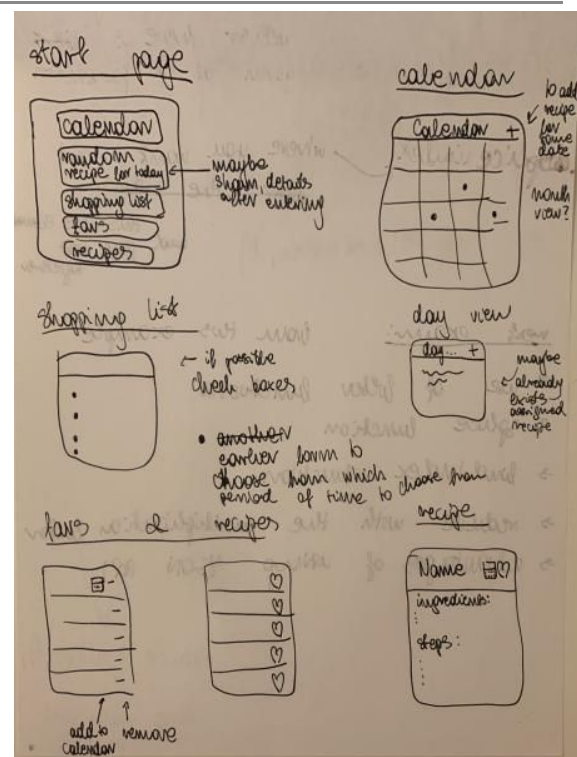 start page
calendar
random
recipe for today
shopping list
favs
recipes
maybe
after entering
calendar
Calendar +
to add
recipe
for
some
date
month
view?
shopping list
if possible
check boxes
• another
earlier form to
choose from which
period of time to choose from
day view
day... +
maybe
already
exists
assigned
recipe
favs & recipes
add to
calendar
remove
recipe
Name
ingredients:
steps: